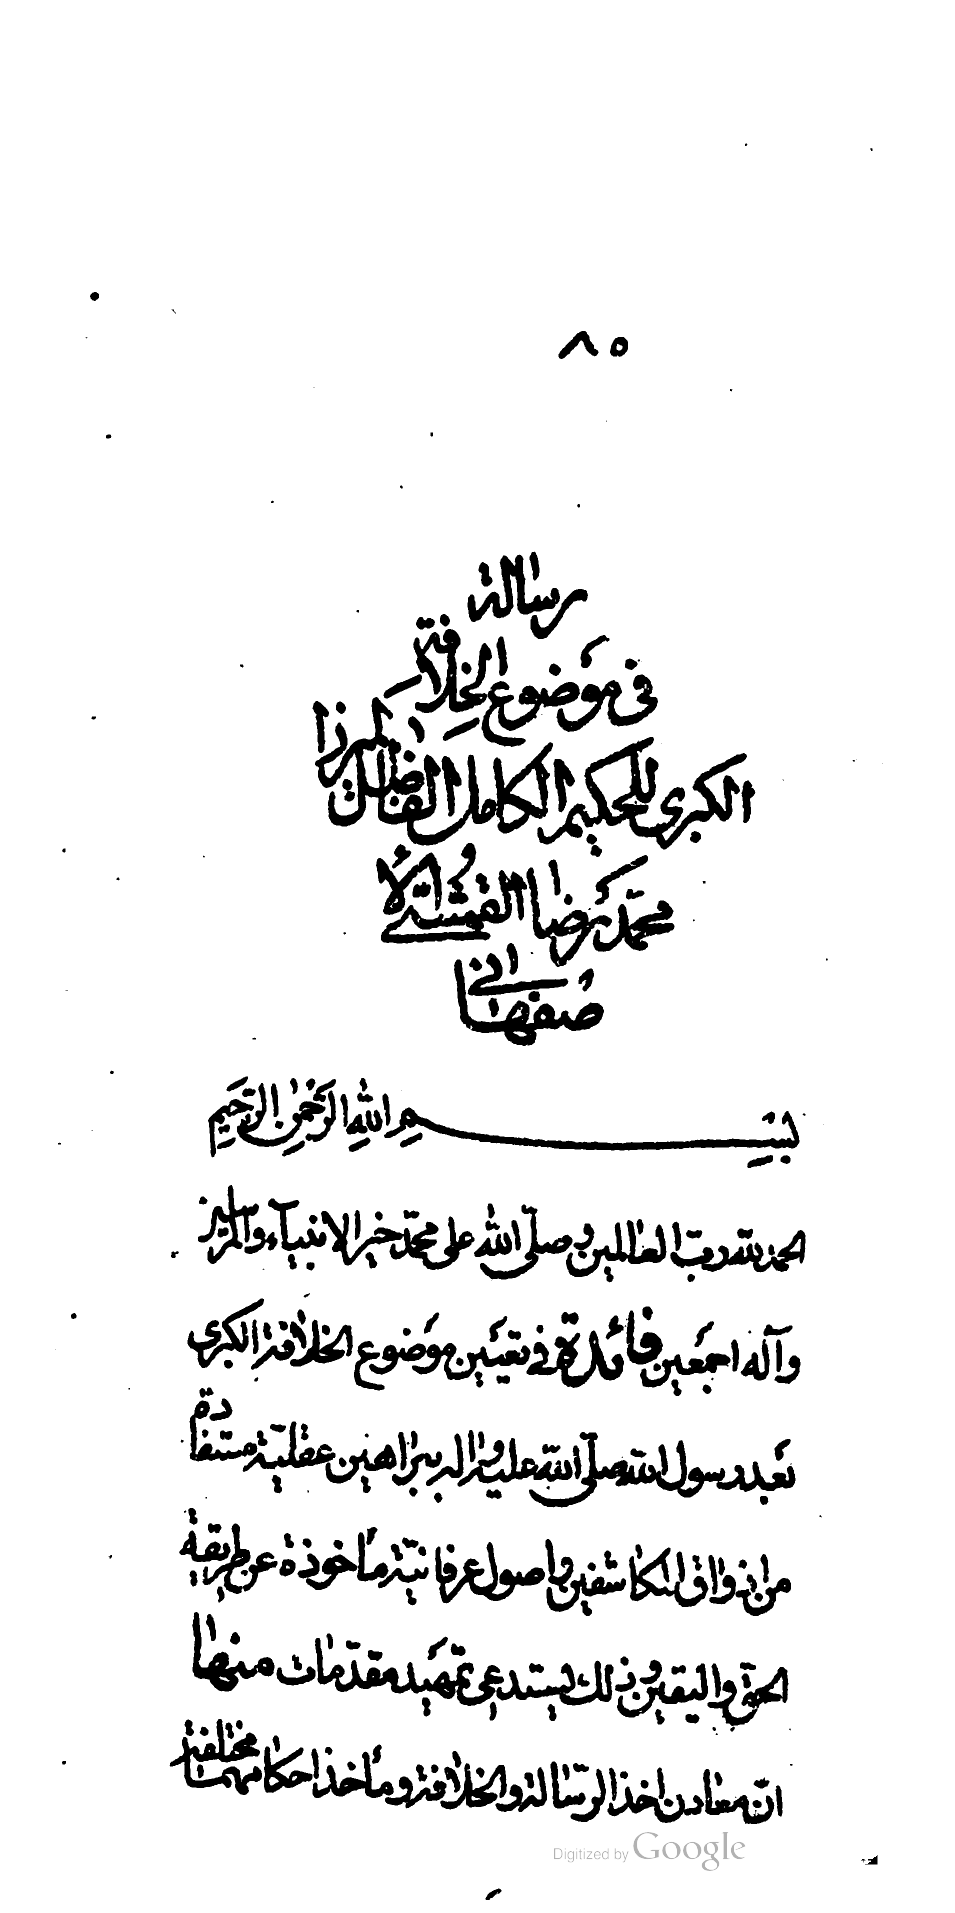 ٨٥
رسالة
فى موضوع الخلافة
الكبرى للحكيم الكامل الفاضل الميرزا
محمد رضا القمشئى الا
صفهانى
بسم الله الرحمن الرحيم
الحمد لله رب العالمين وصلى الله على محمد خير الانبياء والمرسلين
وآله اجمعين فائدة فى تعيين موضوع الخلافة الكبرى
بعد رسول الله صلى الله عليه واله ببراهين عقلية مستفادة
من اذواق المكاشفين واصول عرفانية مأخوذة عن طريقة
الحق واليقين وذلك يستدعى تمهيد مقدمات منها
ان معادن اخذ الرسالة والخلافة ومأخذ احكامهما مختلفة
Digitized by Google